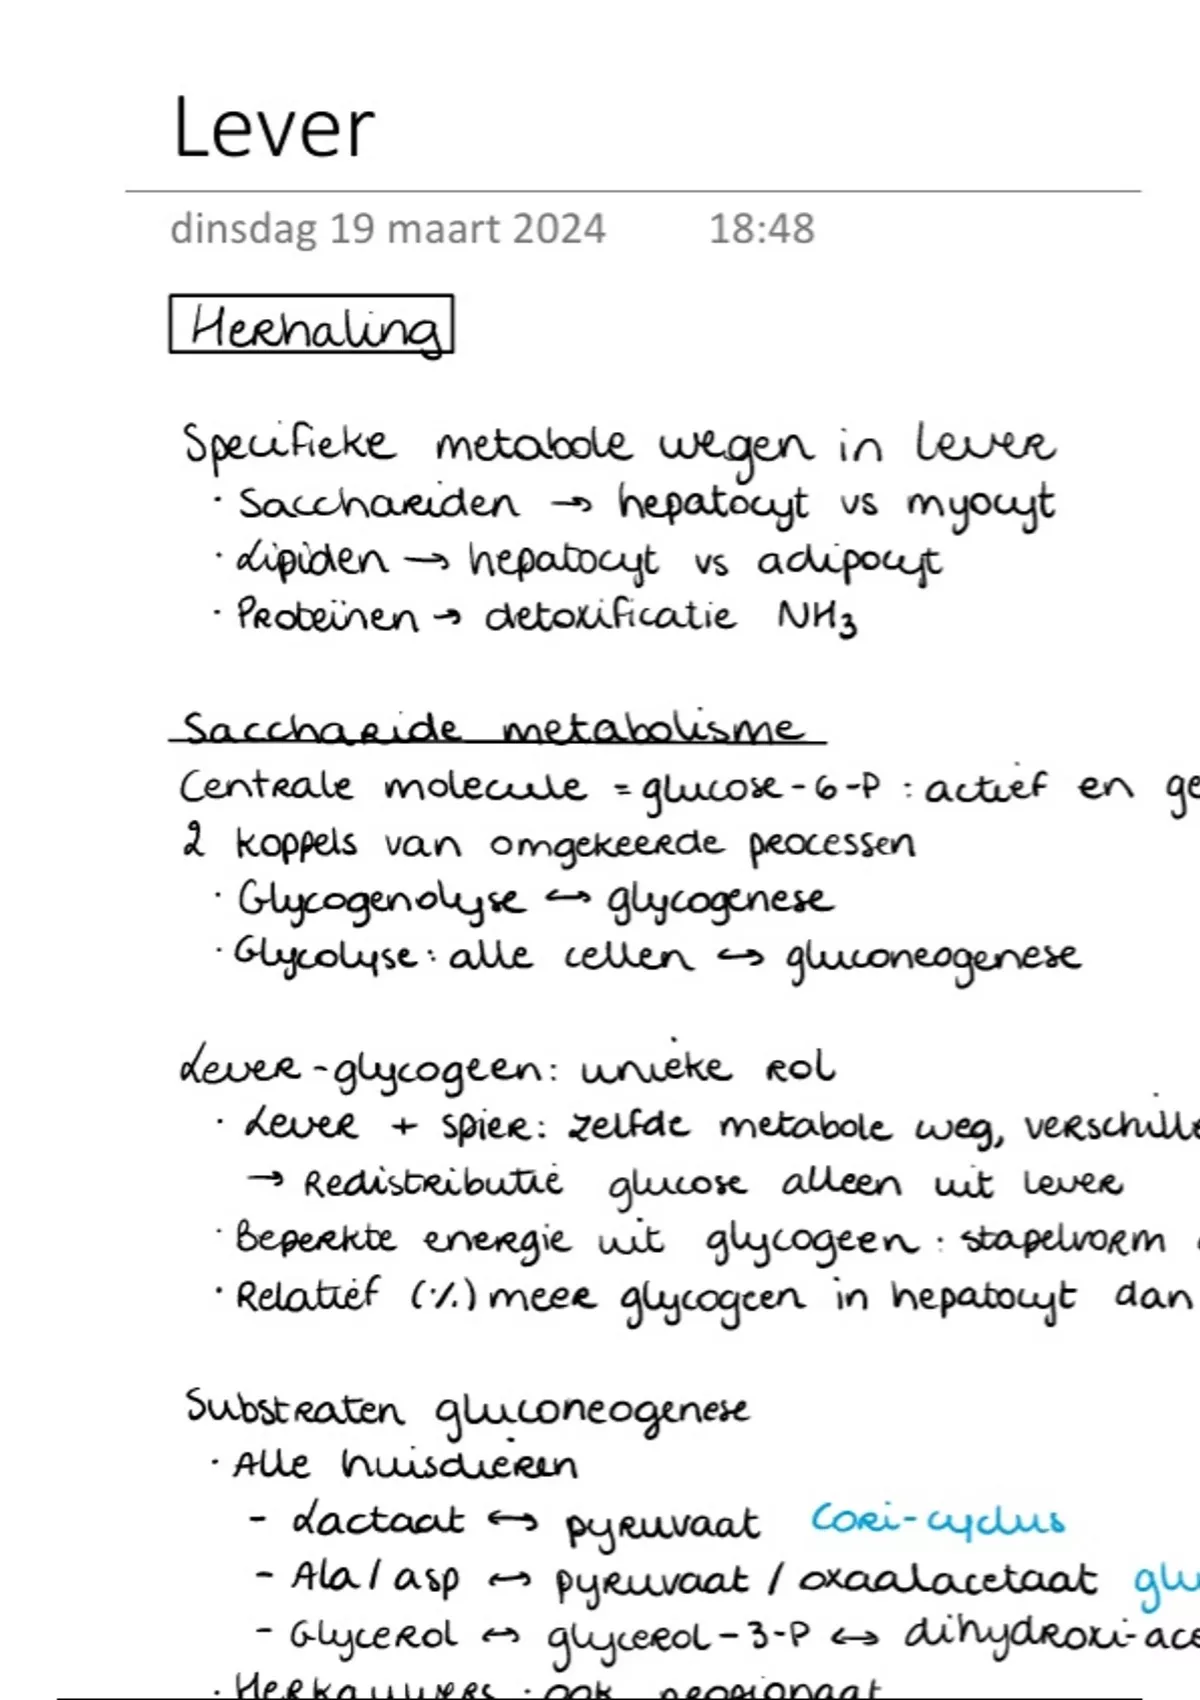 Lever
dinsdag 19 maart 2024 18:48
Herhaling
Specifieke metabole wegen in lever
· Sacchariden → hepatocyt vs myocyt
· Lipiden → hepatocyt vs adipocyt
· Proteïnen → detoxificatie NH3
Saccharide metabolisme
Centrale molecule = glucose-6-P : actief en ge
2 koppels van omgekeerde processen
· Glycogenolyse ↔ glycogenese
· Glycolyse: alle cellen ↔ gluconeogenese
Lever-glycogeen: unieke rol
· Lever + spier: zelfde metabole weg, verschille
→ Redistributie glucose alleen uit lever
· Beperkte energie uit glycogeen : stapelvorm
· Relatief (%) meer glycogeen in hepatocyt dan
Substraten gluconeogenese
· Alle huisdieren
- Lactaat ↔ pyruvaat Cori-cyclus
- Ala/asp ↔ pyruvaat / oxaalacetaat glu
- Glycerol ↔ glycerol-3-P ↔ dihydroxi-ace
· Herkauwers : ook propionaat